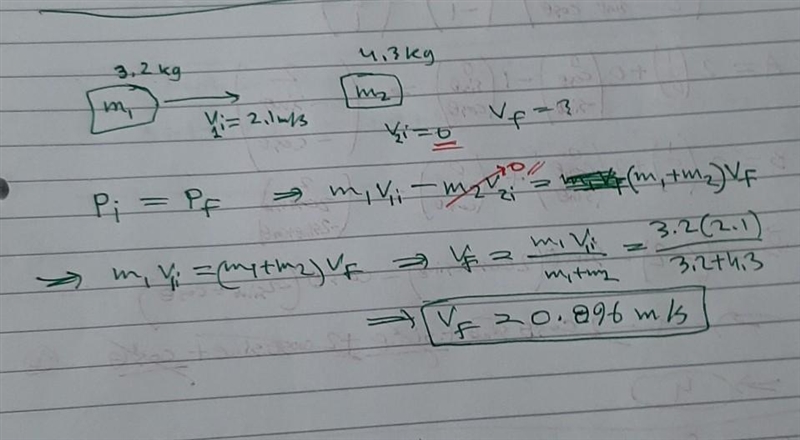 3.2kg 4.3kg
m₁ → m₂
V₁i = 2.1m/s V₂i = 0 Vf = ?
Pi = Pf ⇒ m₁V₁i − m₂V₂i → 0 = (m₁+m₂)Vf
⇒ m₁V₁i = (m₁+m₂)Vf ⇒ Vf = m₁V₁i / m₁+m₂ = 3.2(2.1) / 3.2+4.3
⇒ Vf = 0.896 m/s